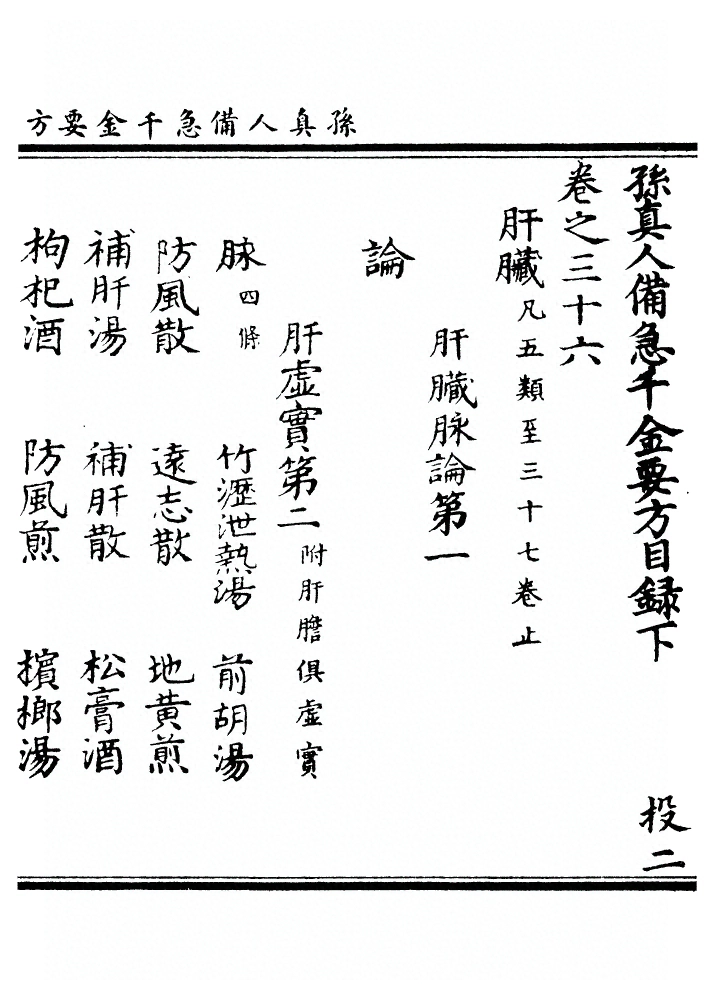 孫真人備急千金要方
孫真人備急千金要方目録下 投二
卷之三十六
肝臟凡五類至三十七卷止
肝臟脉論第一
論
肝虛實第二附肝膽俱虛實
脉四條 竹瀝泄熱湯 前胡湯
防風散 遠志散 地黄煎
補肝湯 補肝散 松膏酒
枸杞酒 防風煎 檳榔湯